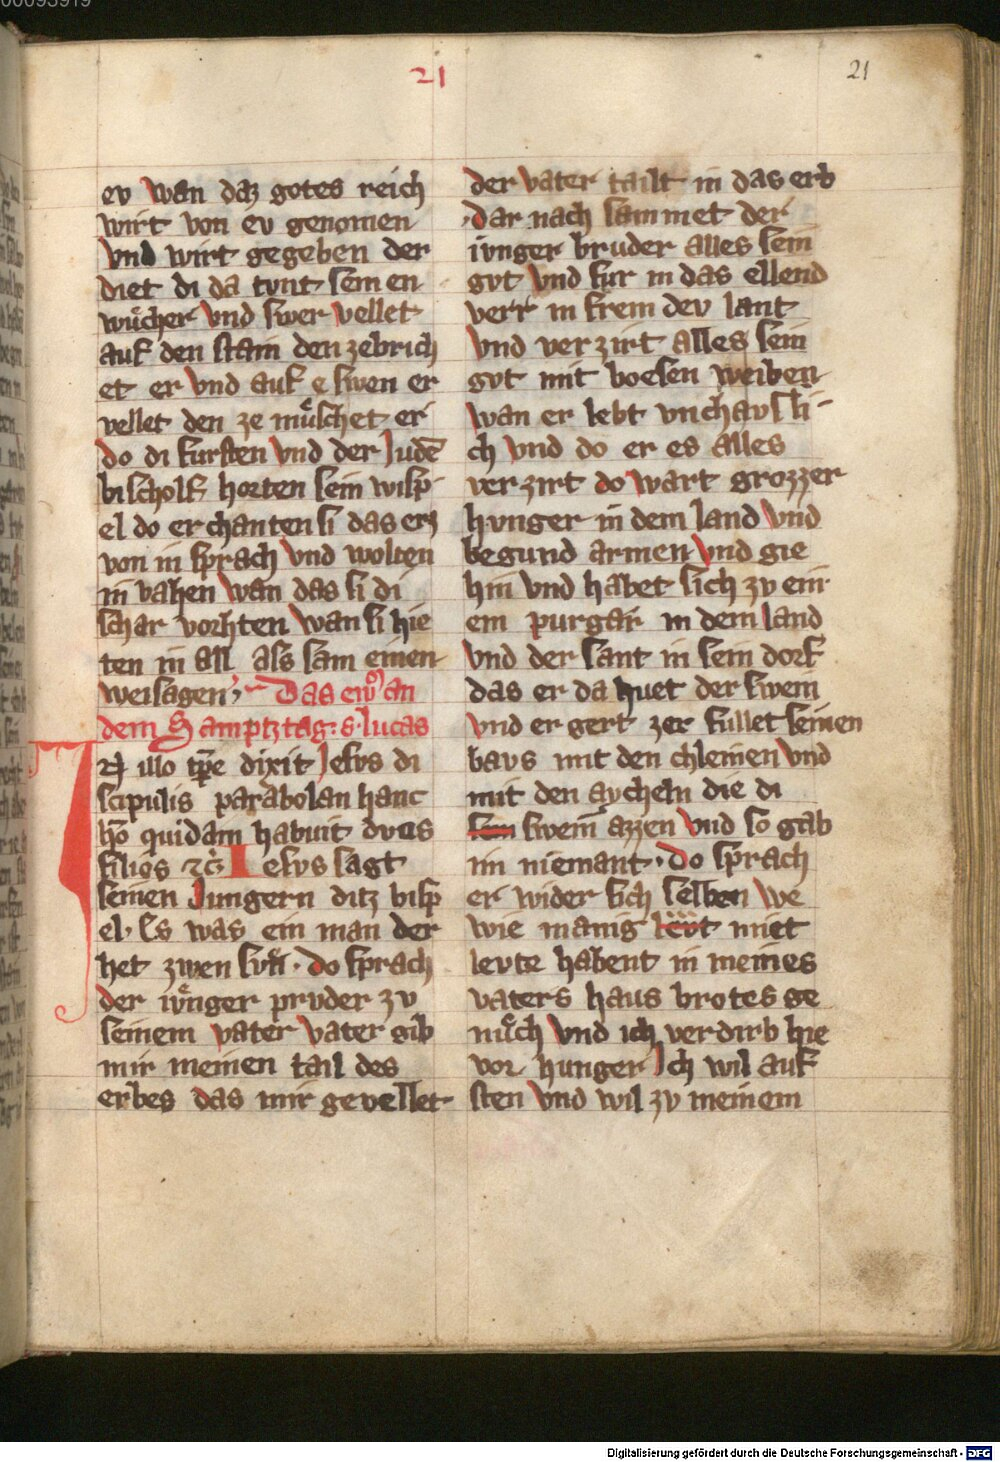 00093919
21
21
ev wan daz gotes reich
wirt von ev genomen
vnd wirt gegeben der
diet di da tvnt sem en
wuͦcher vnd swer vellet
auf den stain den zebrich
et er vnd auf e swen er
vellet den ze muͤschet er
do di fursten vnd der Judē
bischolf horten sein wisp
el do er chanten si das erz
von in sprach vnd wolten
in vahen wan das si di
schar vorhten wan si hie
ten in all als sam einen
weisagen Das ew̄ an
dem Samptztag: s. lucas
In illo tp̄e dixit Jesvs di
scipulis parabolan hanc
ho quidam habuit dvos
filios ⁊c̄ Iesvs sagt
seinen Jungern ditz bisp
el. Es was ein man der
het zwen svn̄. do sprach
der ivͤnger prvder zv
seinem vater vater gib
mir meinen tail des
erbes das mir gevellet
der vater tailt in das erb
dar nach sammet der
ivnger bruder alles sein
gvt vnd fur in das ellend
verr in frem dev lant
vnd ver zirt alles sein
gvt mit boesen weiben
wan er lebt vnchavsli-
ch vnd do er es alles
ver zirt do wart grozzer
hvnger in dem land vnd
begund armen vnd gie
hin vnd habet sich zv ein
em purgár in dem land
vnd der sant in sein dorf
das er da huet der swein
vnd er gert zer fullet seinen
bavs mit den chleinen vnd
mit den aycheln die di
sein swein azzen vnd so gab
im niemant. do sprach
er wider sich selben we
wie manig leyt miet
levte habent in meines
vaters haus brotes ge
nuͦch vnd ich verdirb hie
vor hunger Ich wil auf
sten vnd wil zv meinem
Digitalisierung gefördert durch die Deutsche Forschungsgemeinschaft - DFG